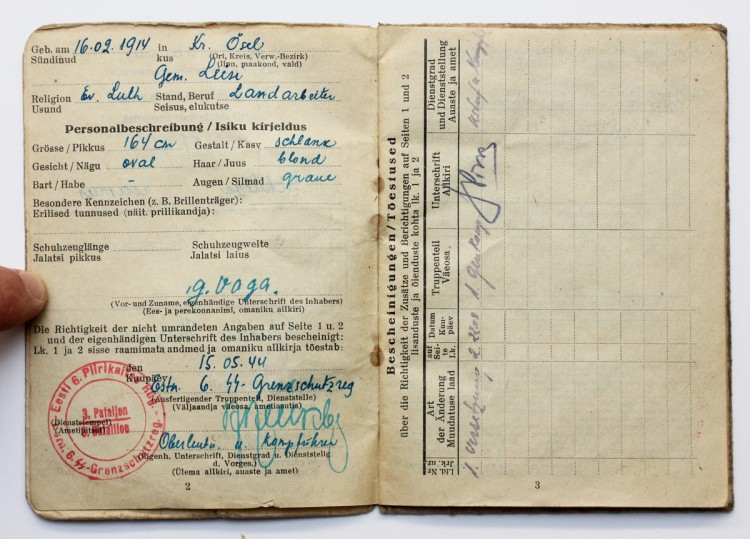 Geb. am 16.02.1914 in Kr. Ösel
Sündinud kus (Ort, Kreis, Verw.-Bezirk)
(linn, maakond, vald)
Gem. Leisi
Religion Ev. Luth Stand, Beruf Landarbeiter
Usund Seisus, elukutse
Personalbeschreibung / Isiku kirjeldus
Grösse / Pikkus 164 cm Gestalt / Kasv schlank
Gesicht / Nägu oval Haar / Juus blond
Bart / Habe - Augen / Silmad graue
Besondere Kennzeichen (z. B. Brillenträger):
Erilised tunnused (näit. prillikandja):
Schuhzeuglänge Schuhzeugweite
Jalatsi pikkus Jalatsi laius
g. Voga.
(Vor- und Zuname, eigenhändige Unterschrift des Inhabers)
(Ees- ja perekonnanimi, omaniku allkiri)
Die Richtigkeit der nicht umrandeten Angaben auf Seite 1 u. 2
und der eigenhändigen Unterschrift des Inhabers bescheinigt:
Lk. 1 ja 2 sisse raamimata andmed ja omaniku allkirja tõestab:
den 15.05.44
Kuupäev
Estn. 6. SS-Grenzschutzreg
(Ausfertigender Truppenteil, Dienststelle)
(Väljaandja väeosa, ametiasutis)
(Dienststempel)
(Ametipitsat)
Eesti 6. Piirikaitse Rüg.
3. Pataljon
3. Bataillon
Estn. 6. SS-Grenzschutzreg.
Oberleutn. u. Kompführer
(Eigenh. Unterschrift, Dienstgrad u. Dienststellg.
d. Vorges.)
(Ülema allkiri, auaste ja amet)
2
Bescheinigungen / Tõestused
über die Richtigkeit der Zusätze und Berichtigungen auf Seiten 1 und 2
lisanduste ja õienduste kohta lk. 1 ja 2
Lfd. Nr
Jrk. nr.
Art
der Änderung
Muudatuse laad
auf
Sei-
te
Lk.
Datum
Kuu-
päev
Truppenteil
Väeosa.
Unterschrift
Allkiri
Dienstgrad
und Dienststellung
Auaste ja amet
1. Versetzung 2
3